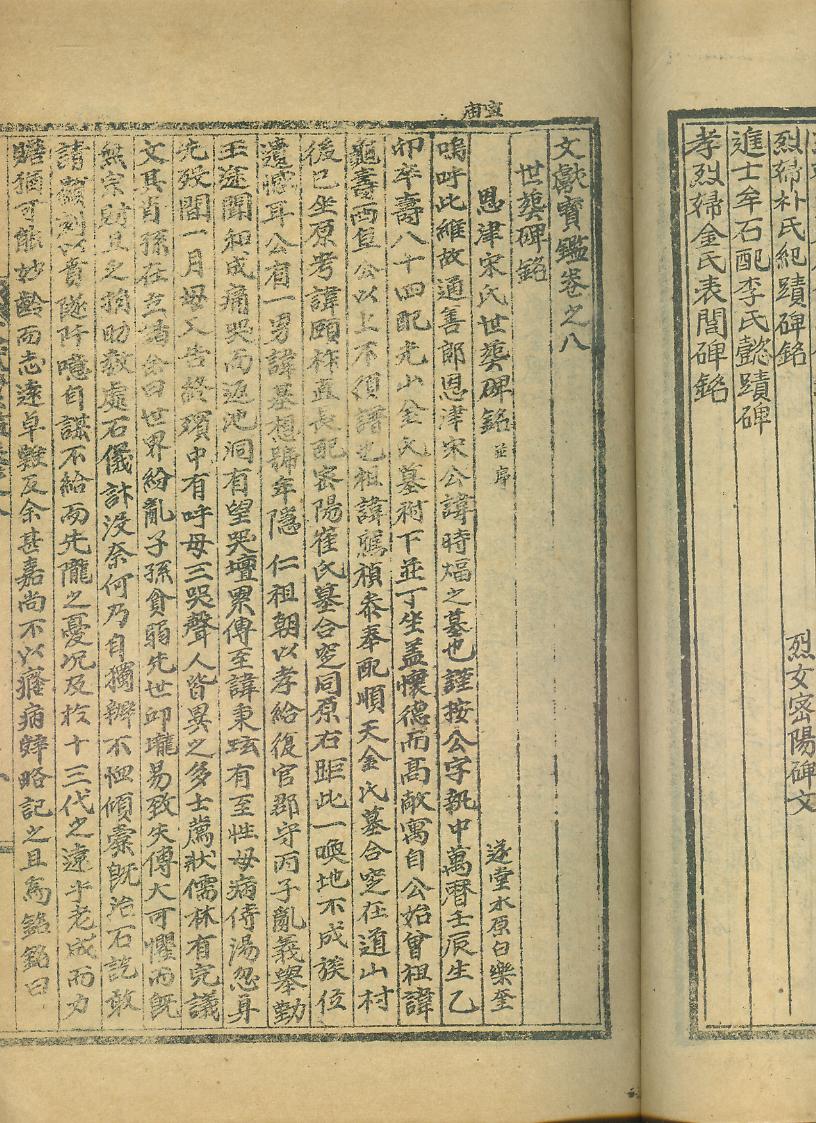 烈婦朴氏紀蹟碑銘
烈女密陽碑文
進士牟石配李氏懿蹟碑
孝烈婦金氏表閭碑銘
文獻寶鑑卷之八
世葬碑銘
恩津宋氏世葬碑銘 並序
遂堂水原白樂奎
嗚呼此維故通善郎恩津宋公諱時煏之墓也謹按公字執中萬曆壬辰生乙
卯卒壽八十四配光山金氏墓祔下並丁坐盖懷德而高敞寓自公始曾祖諱
龜壽西阜公以上不須譜也祖諱應禎叅奉配順天金氏墓合窆在道山村
後巳坐原考諱頤祚直長配密陽崔氏墓合窆同原右距此一喚地不成族位
遺憾耳公有一男諱基想號年隱 仁祖朝以孝給復官郡守丙子亂義舉勤
王途聞和成痛哭而返池洞有望哭壇累傳至諱東玹有至性母病侍湯忽身
先歿間一月母又告終殯中有呼母三哭聲人皆異之多士薦狀儒林有完議
文其肖孫在 曰世界紛亂子孫貧弱先世邱壠易致失傳大可懼而旣
無宗財且乏捐助數處石儀計沒奈何乃自獨辦不恤傾橐旣治石訖敢
請顯刻以賁隧阡噫自謀不給而先隴之憂况及於十三代之遠乎老成而力
贍猶可能妙齡而志遠卓難及余甚嘉尚不以癃病辭略記之且爲銘銘曰